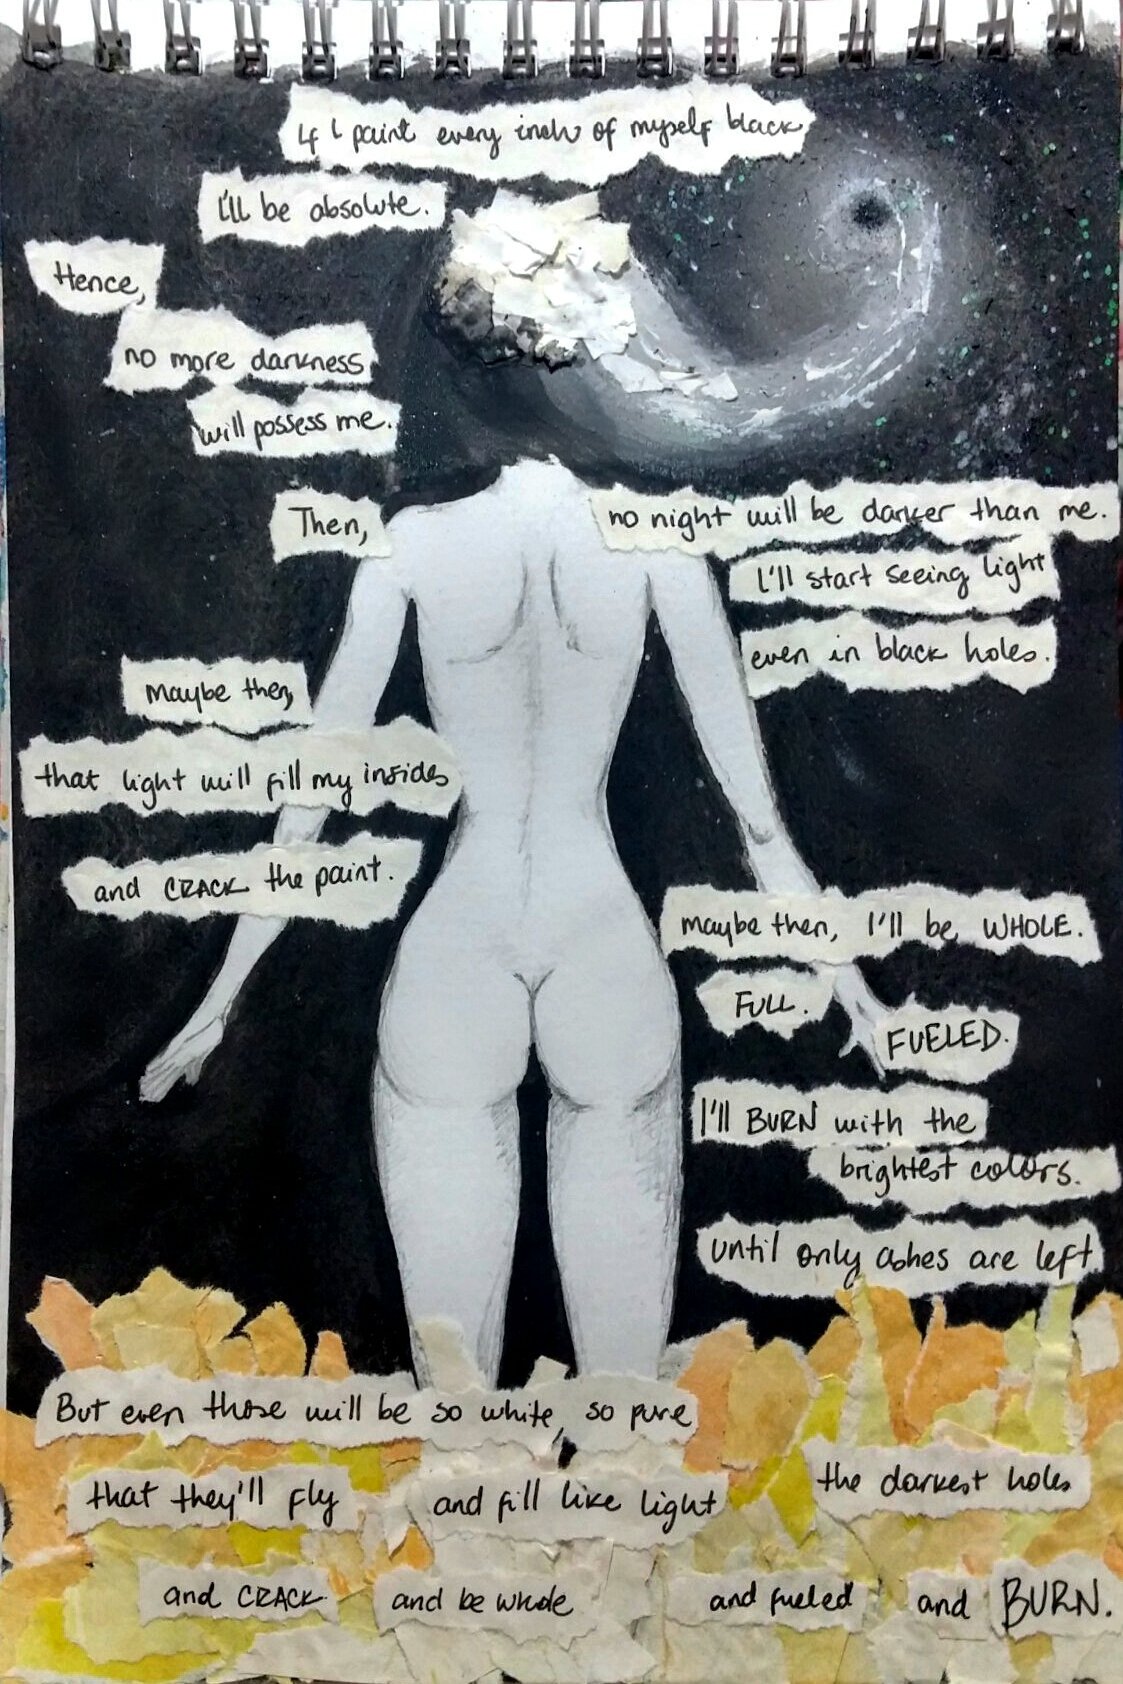 If I paint every inch of myself black
I'll be absolute.
Hence,
no more darkness
will possess me.
Then,
no night will be darker than me.
I'll start seeing light
even in black holes.
maybe then,
that light will fill my insides
and CRACK the paint.
maybe then, I'll be WHOLE.
FULL.
FUELED.
I'll BURN with the
brightest colors.
until only ashes are left
But even those will be so white, so pure
that they'll fly and fill like light the darkest holes
and CRACK and be whole and fueled and BURN.